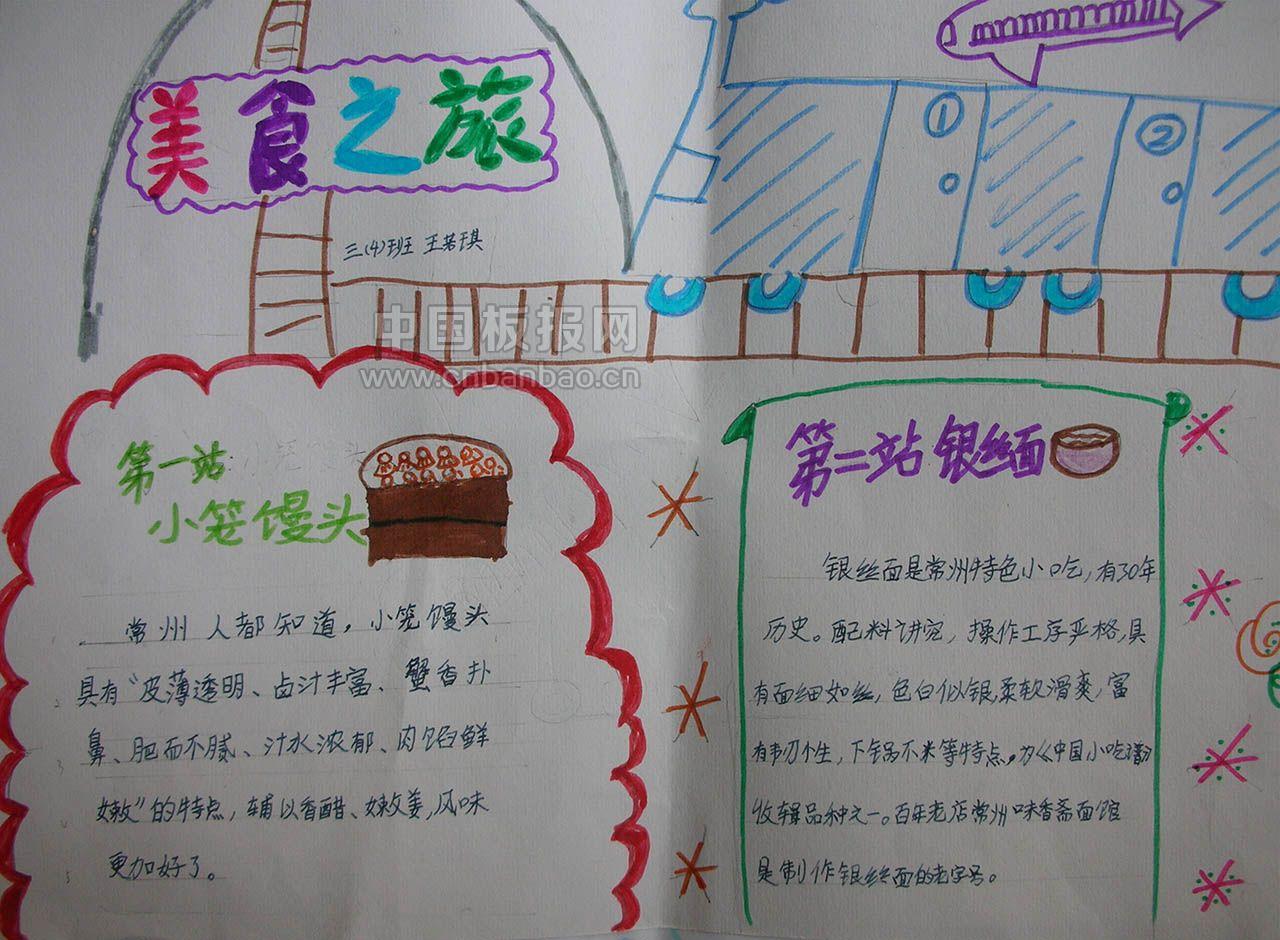 美食之旅
①
②
三(4)班 王若琪
中国板报网
www.cnbanbao.cn
第一站
小笼馒头
常州人都知道，小笼馒头
具有“皮薄透明、卤汁丰富、蟹香扑
鼻、肥而不腻、汁水浓郁、肉馅鲜
嫩”的特点，辅以香醋、嫩姜，风味
更加好了。
第二站 银丝面
银丝面是常州特色小吃，有30年
历史。配料讲究，操作工序严格，具
有面细如丝，色白似银，柔软滑爽，富
有韧个生，下锅不米等特点。为《中国小吃谱》
收辑品种之一。百年老店常州味香斋面馆
是制作银丝面的老字号。